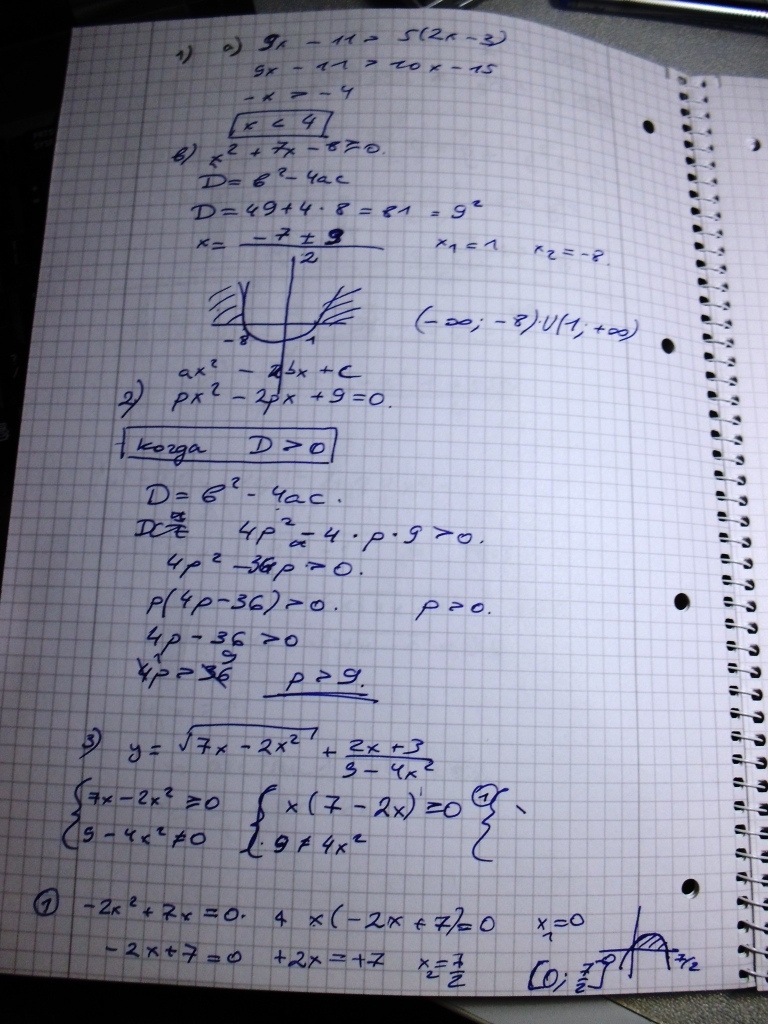 1) a) 9x - 11 > 5(2x - 3)
9x - 11 > 10x - 15
-x > -4
x < 4
в) x² + 7x - 8 ≥ 0.
D = в² - 4ac
D = 49 + 4 · 8 = 81 = 9²
x = (-7 ± 9)/2 x₁ = 1 x₂ = -8.
-8 1 (-∞; -8) ∪ (1; +∞)
ax² - bx + c
2) px² - 2px + 9 = 0.
когда D > 0
D = в² - 4ac.
4p² - 4 · p · 9 > 0.
4p² - 36p > 0.
p(4p - 36) > 0. p > 0.
4p - 36 > 0
4p > 36 9 p > 9.
3) y = √(7x - 2x²) + (2x + 3)/(9 - 4x²)
{ 7x - 2x² ≥ 0 { x(7 - 2x) ≥ 0 ① {
9 - 4x² ≠ 0 9 ≠ 4x²
① -2x² + 7x = 0. x(-2x + 7) = 0 x₁ = 0
-2x + 7 = 0 +2x = +7 x₂ = 7/2 [0; 7/2] 0 7/2